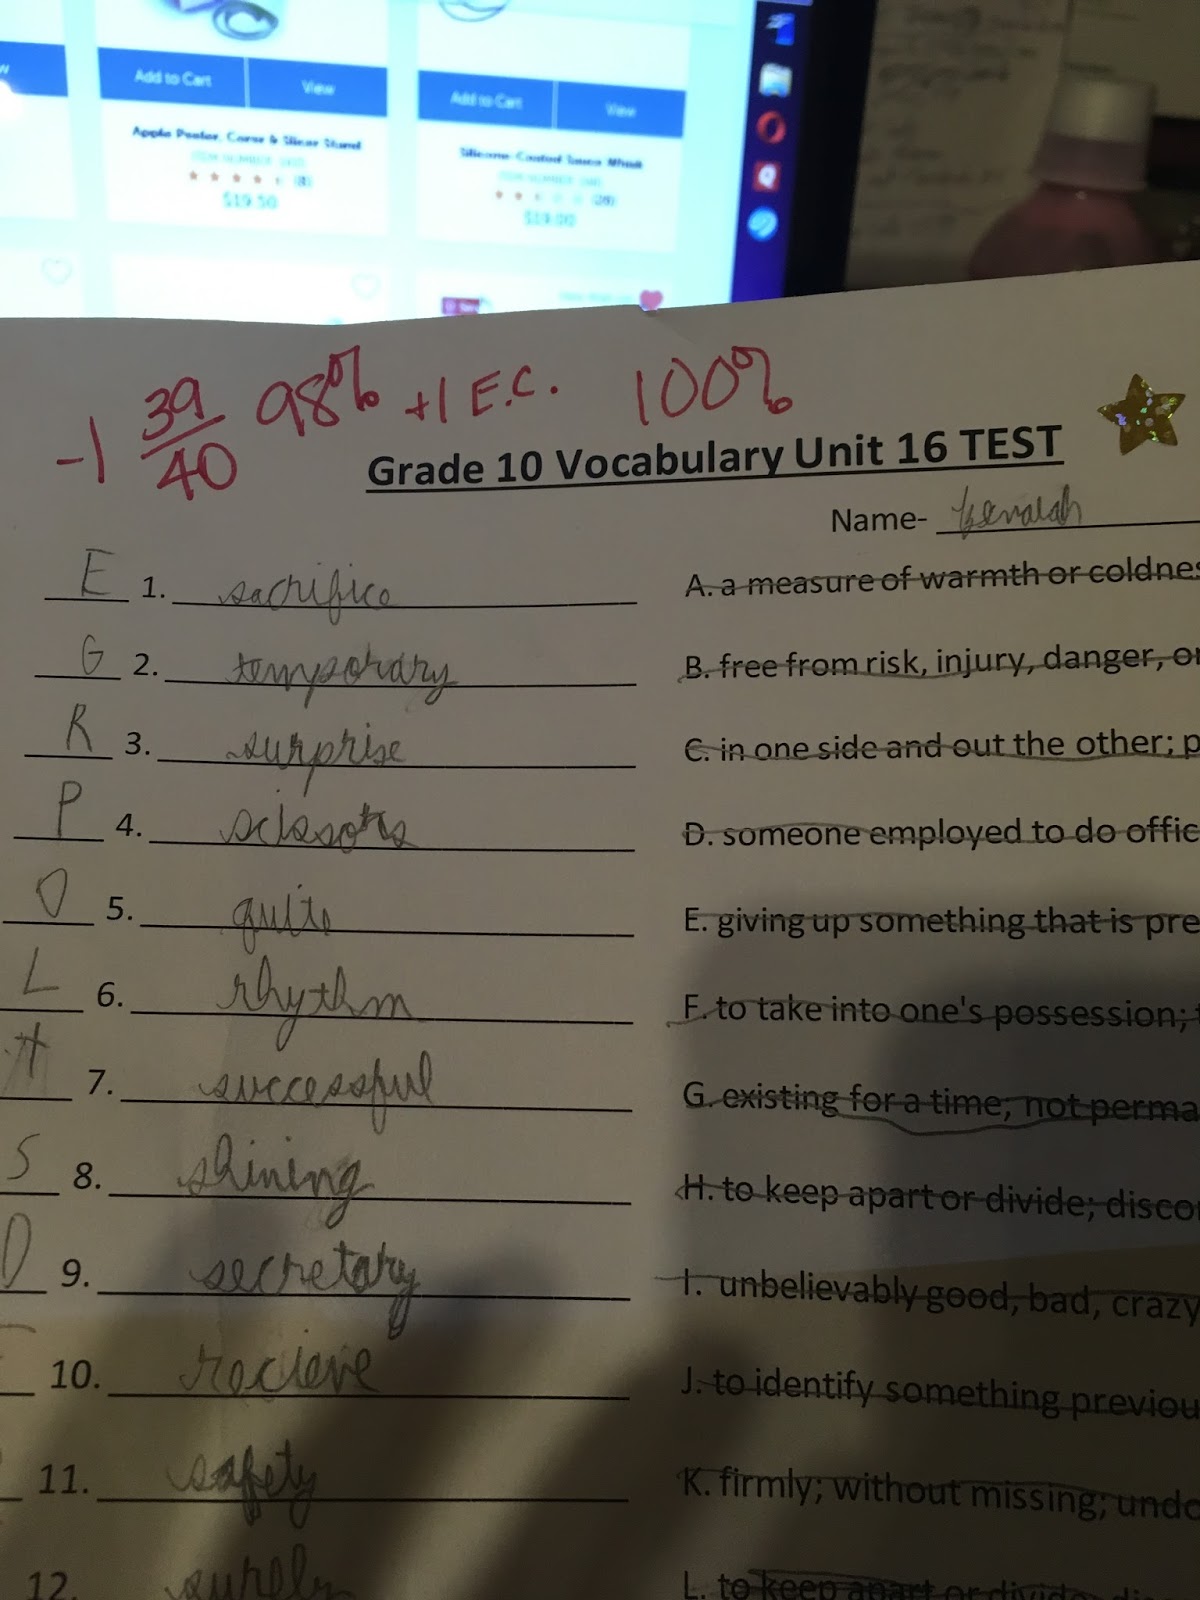 Add to Cart View
Add to Cart View
Apple Peeler, Corer & Slicer Stand
Silicone-Coated Sauce Whisk
(8)
$19.50
$19.00
-1 39/40 98% +1 E.C. 100%
Grade 10 Vocabulary Unit 16 TEST
Name-
E 1. sacrifice A. a measure of warmth or coldnes
G 2. temporary B. free from risk, injury, danger, or
R 3. surprise C. in one side and out the other; p
P 4. scissors D. someone employed to do offic
O 5. quite E. giving up something that is pre
L 6. rhythm F. to take into one's possession;
H 7. successful G. existing for a time; not perma
S 8. shining H. to keep apart or divide; disco
D 9. secretary I. unbelievably good, bad, crazy
10. recieve J. to identify something previou
11. safety K. firmly; without missing; undo
12. surely L. to keep apart or divide;